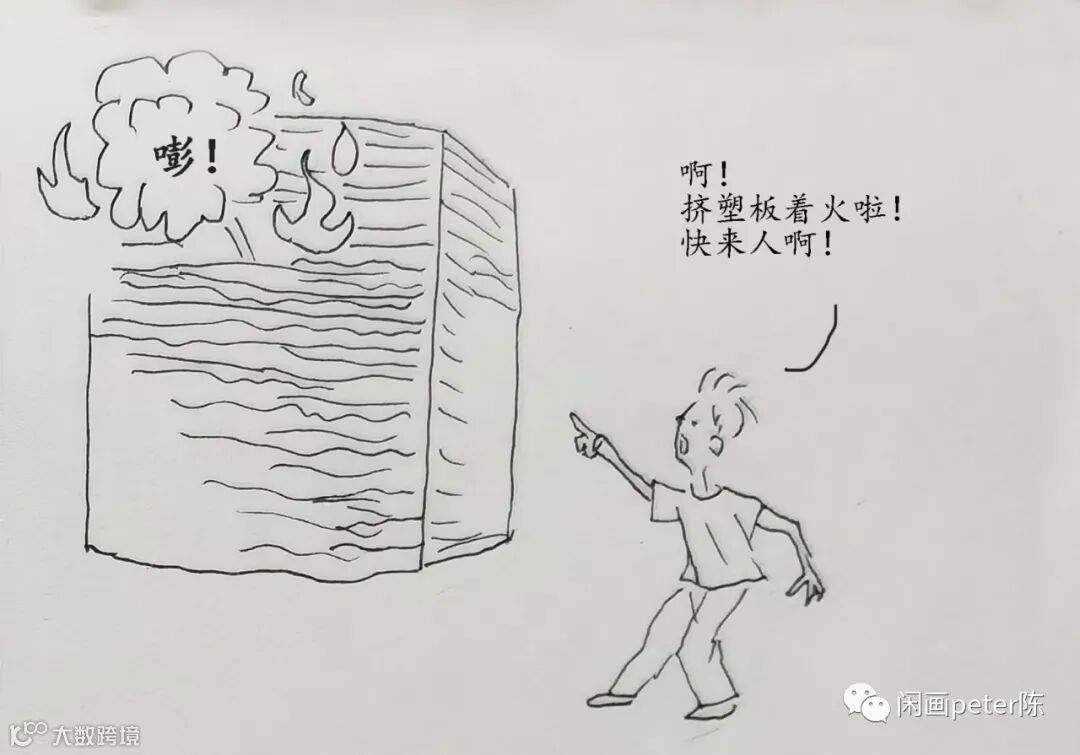 嘭!
啊!
挤塑板着火啦!
快来人啊!
闲画peter陈
大数跨境